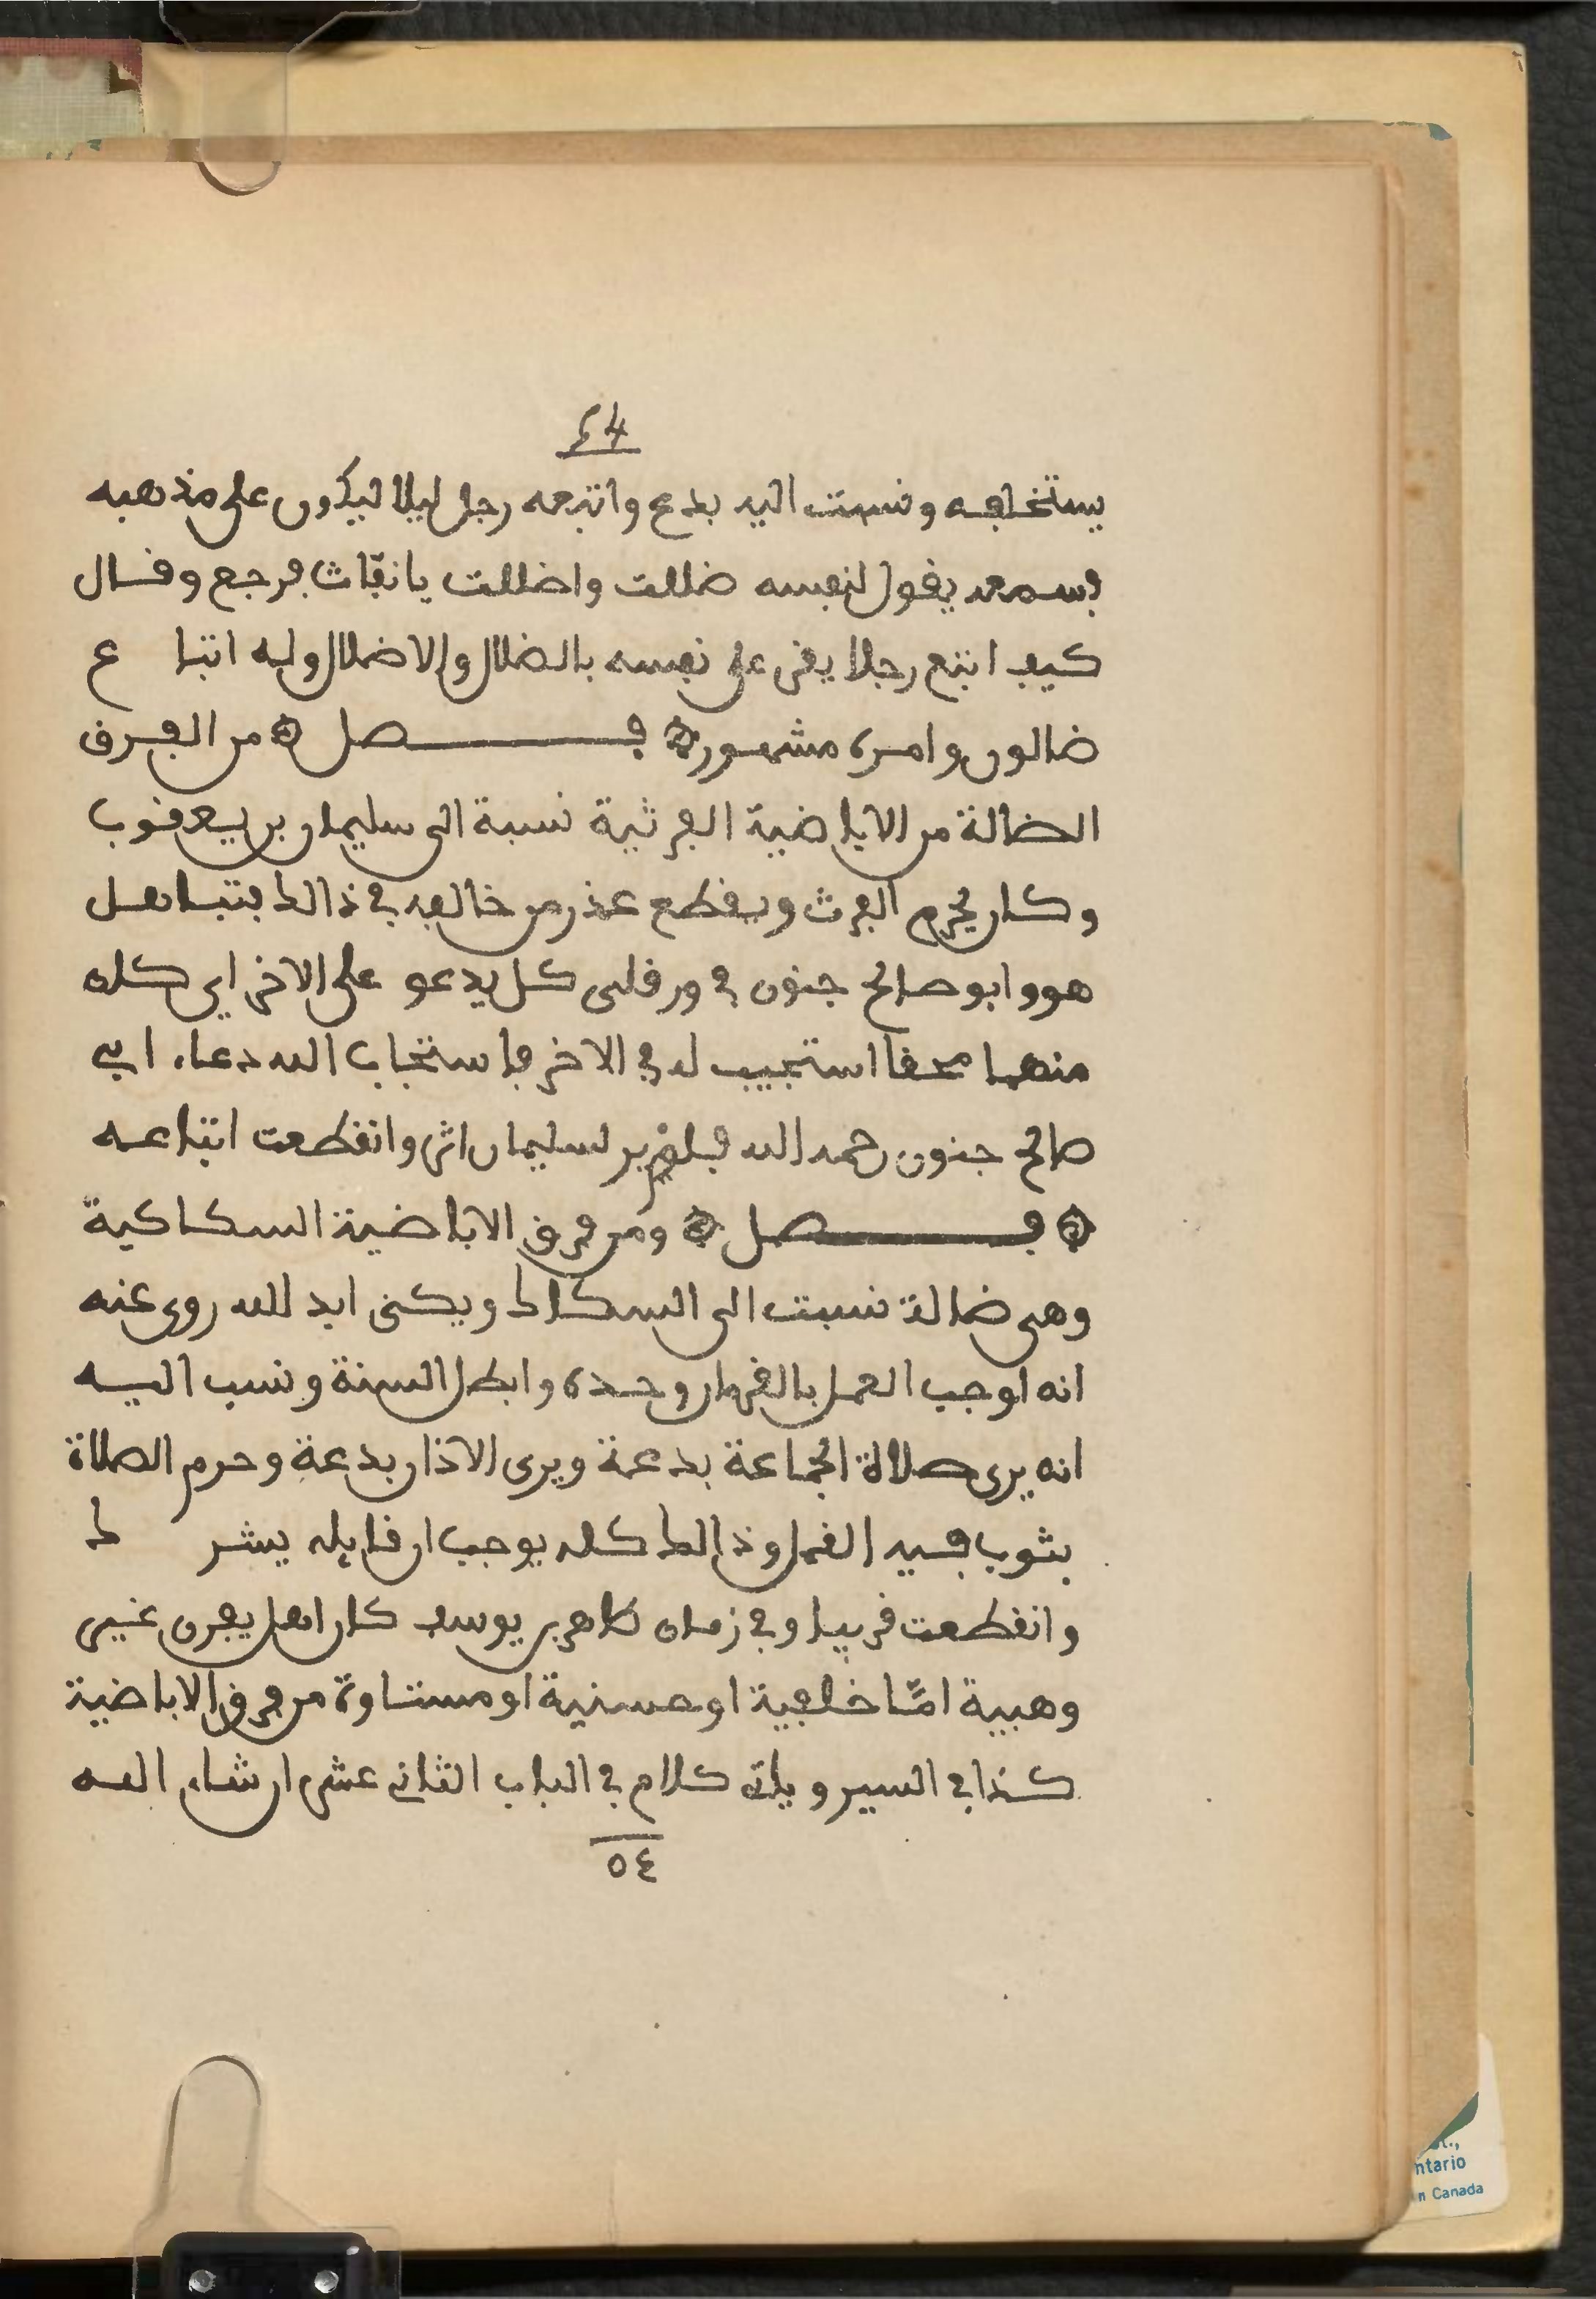 ٤٤
يستخلفه ونسبت اليه بدع واتبعه رجل ليلا ليكون على مذهبه
فسمعه يقول لنفسه ضللت واضللت يا نفّاث فرجع وقال
كيف اتبع رجلا يقر على نفسه بالضلال والاضلال وله اتبا ع
ضالون وامره مشهور ۞ فصل ۞ من الفرق
الضالة من الاباضية الفرثية نسبة الى سليمان بن يعقوب
وكان يحرم الفرث ويقطع عذر من خالفه في ذالك فتباهل
هو وابو صالح جنون في ورقلى كل يدعو على الاخر اي كله
منهما محقا استجيب له في الاخر فاستجاب الله دعاء ابي
صالح جنون رحمه الله فلم ير لسليمان اثر وانقطعت اتباعه
۞ فصل ۞ ومن فرق الاباضية السكاكية
وهي ضالة نسبت الى السكاك ويكنى ابد لله روى عنه
انه اوجب العمل بالقرءان وحده وابطل السنة ونسب اليه
انه يرى صلاة الجماعة بدعة ويرى الاذان بدعة وحرم الصلاة
بثوب فيه القمل وذالك كله يوجب ان قايله يشر ك
وانقطعت قريبا وفي زمان كاهر بن يوسف كان اهل يفرن غير
وهبية امّا خلفية او حسنية او مستاوة من فرق الاباضية
كذا في السير وياتي كلام في الباب الثاني عشر ان شاء الله
٥٤
ntario
n Canada